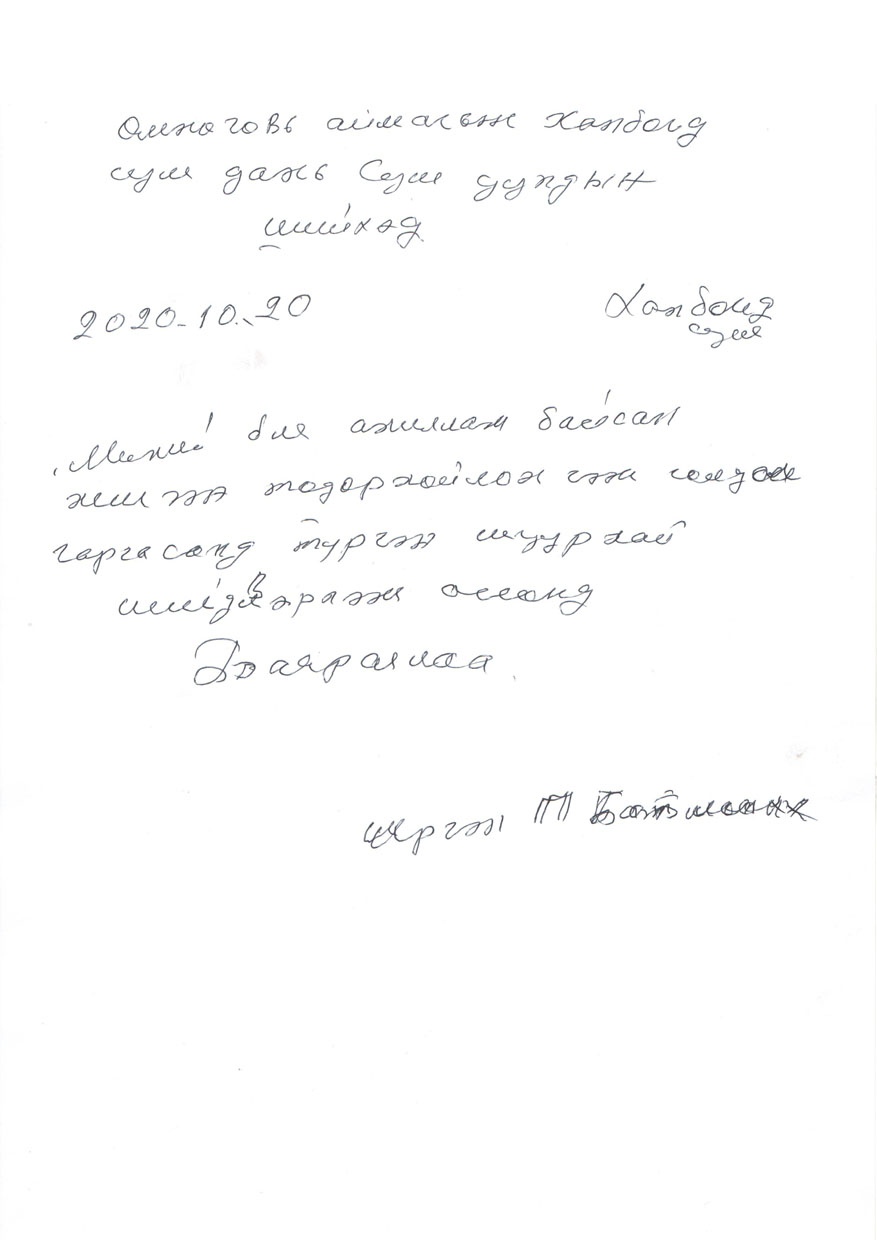 Өмнөговь аймагын Ханбогд
сум дахь Сум дундын
шүүхэд
2020-10.20
Ханбогд
сум
Миний бие ажиллаж байсан
жилээ тодорхойлон гэж
гаргасанд түргэн шуурхай
шийдвэрлэж өгсөнд
Баярлалаа
иргэн П Батмөнх